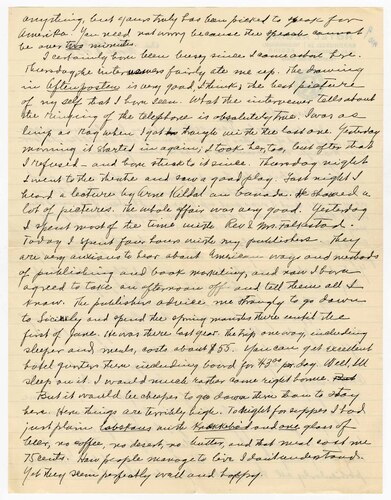 anything, but yours truly has been picked to speak for
America. You need not worry because the speech cannot
be over two minutes.
I certainly have been busy since I came out here.
Thursday the interviewers fairly ate me up. The drawing
in Aftenposten is very good, I think, the best picture
of my self that I have seen. What the interviewer tells about
the ringing of the telephone is absolutely true. I was as
limp as Rag when I got through with the last one. Yesterday
morning it started in again, I took her, too, but after that
I refused - and have stuck to it since. Thursday night
I went to the theatre and saw a good play. Last night I
heard a lecture by Arne Kildal on Canada. He showed a
lot of pictures. The whole affair was very good. Yesterday
I spent most of the time with Rev & Mrs.
Today I spent four hours with my publishers. They
are very anxious to hear about American ways and methods
of publishing and book marketing, and now I have
agreed to take an afternoon off and tell them all I
know. The publishers advice me strongly to go down
to Sicily and spend the spring months there until the
first of June. He was there last year. The trip one way, including
sleeper and meals, costs about $55. You can get excellent
hotel quarters there including board for $3.00 pr. day. Well, I'll
sleep on it. I would much rather come right home.
But it would be cheaper to go down there than to stay
here. Here things are terribly high. Tonight for supper I had
just plain labskaus with and one glass of
beer, no coffee, no desert, no butter, and that meal cost me
75 cents. How people manage to live I don't understand.
Yet they seem perfectly well and happy.